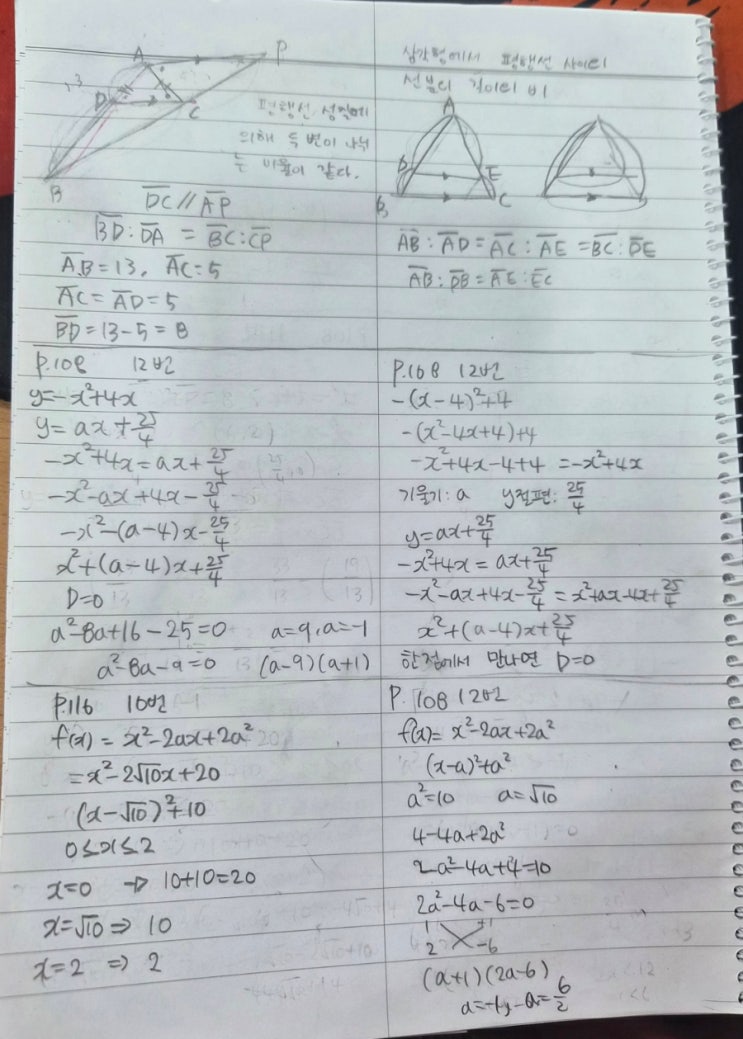 A
P
D
C
B
평행선 성질에
의해 두 변이 나뉘
는 비율이 같다.
D̅C̅ // A̅P̅
B̅D̅ : D̅A̅ = B̅C̅ : C̅P̅
A̅B̅ = 13, A̅C̅ = 5
A̅C̅ = A̅D̅ = 5
B̅D̅ = 13-5 = 8
삼각형에서 평행선 사이의
선분의 길이의 비
A
D
E
B
C
A̅B̅ : A̅D̅ = A̅C̅ : A̅E̅ = B̅C̅ : D̅E̅
A̅B̅ : D̅B̅ = A̅E̅ : E̅C̅
P.108 12번
y=-x²+4x
y = ax + 25/4
-x²+4x = ax + 25/4
-x²-ax+4x-25/4
-x²-(a-4)x-25/4
x²+(a-4)x+25/4
D=0
a²-8a+16-25=0 a=9, a=-1
a²-8a-9=0 (a-9)(a+1)
P.108 12번
-(x-4)²+4
-(x²-4x+4)+4
-x²+4x-4+4 = -x²+4x
기울기: a y절편: 25/4
y=ax+25/4
-x²+4x = ax+25/4
-x²-ax+4x-25/4 = x²+ax-4x+25/4
x²+(a-4)x+25/4
한점에서 만나면 D=0
P.116 10번
f(x) = x²-2ax+2a²
=x²-2√10x+20
(x-√10)²+10
0≤x≤2
x=0 → 10+10=20
x=√10 ⇒ 10
x=2 ⇒ 2
P. 108 12번
f(x)= x²-2ax+2a²
(x-a)²+a²
a²=10 a=√10
4-4a+2a²
2a²-4a+4=10
2a²-4a-6=0
1 +1
2 -6
(a+1)(2a-6)
a=-1, a=6/2